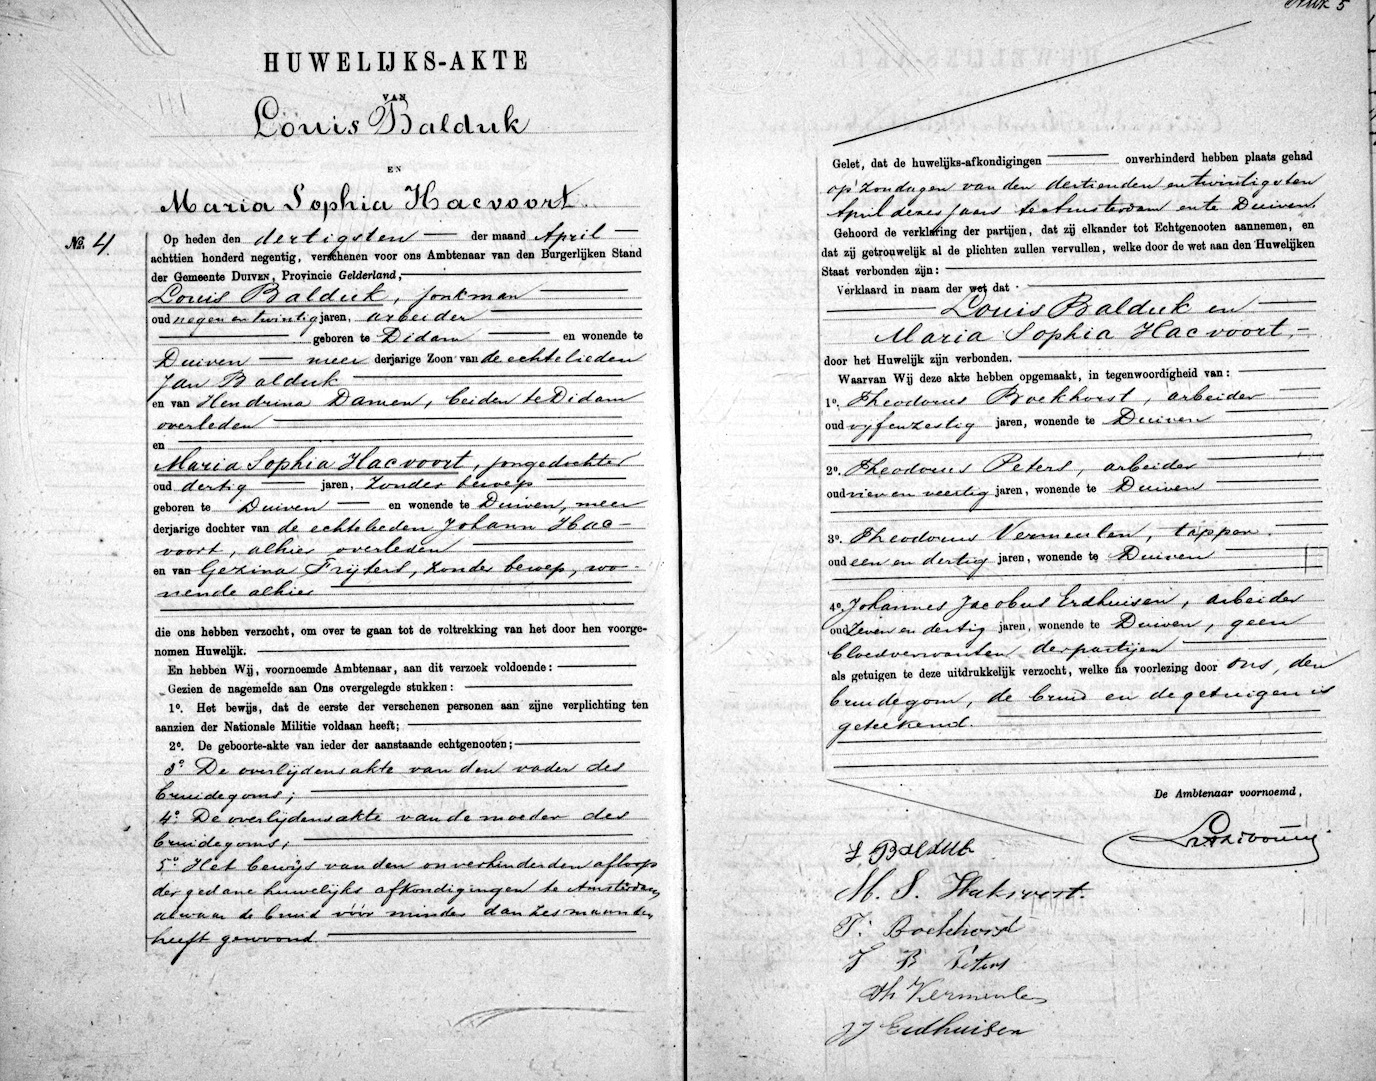 HUWELIJKS-AKTE
VAN
Louis Balduk
EN
Maria Sophia Hacvoort
No. 4.
Op heden den dertigsten der maand April
achttien honderd negentig, verschenen voor ons Ambtenaar van den Burgerlijken Stand
der Gemeente DUIVEN, Provincie Gelderland,
Louis Balduk, jonkman
oud negen en twintig jaren, arbeider
geboren te Didam en wonende te
Duiven meer derjarige Zoon van de echtelieden
Jan Balduk
en van Hendrina Damen, beiden te Didam
overleden
en
Maria Sophia Hacvoort, jongedochter
oud dertig jaren, zonder beroep
geboren te Duiven en wonende te Duiven, meer
derjarige dochter van de echtelieden Johann Hac-
voort, alhier overleden
en van Gezina Frijters, zonder beroep, wo-
nende alhier
die ons hebben verzocht, om over te gaan tot de voltrekking van het door hen voorge-
nomen Huwelijk.
En hebben Wij, voornoemde Ambtenaar, aan dit verzoek voldoende:
Gezien de nagemelde aan Ons overgelegde stukken:
1o. Het bewijs, dat de eerste der verschenen personen aan zijne verplichting ten
aanzien der Nationale Militie voldaan heeft;
2o. De geboorte-akte van ieder der aanstaande echtgenooten;
3o De overlijdensakte van den vader des
bruidegoms;
4o. De overlijdensakte van de moeder des
bruidegoms;
5o. Het bewijs van den onverhinderden afloop
der gedane huwelijks afkondigingen te Amsterdam,
alwaar de bruid vóór minder dan zes maanden
heeft gewoond.
5
Gelet, dat de huwelijks-afkondigingen onverhinderd hebben plaats gehad
op Zondagen van den dertienden en twintigsten
April dezes jaars te Amsterdam en te Duiven.
Gehoord de verklaring der partijen, dat zij elkander tot Echtgenooten aannemen, en
dat zij getrouwelijk al de plichten zullen vervullen, welke door de wet aan den Huwelijken
Staat verbonden zijn:
Verklaard in naam der wet dat
Louis Balduk en
Maria Sophia Hacvoort,
door het Huwelijk zijn verbonden.
Waarvan Wij deze akte hebben opgemaakt, in tegenwoordigheid van:
1o. Theodorus Boekhorst, arbeider
oud vyfenzestig jaren, wonende te Duiven
2o. Theodorus Peters, arbeider
oud vier en veertig jaren, wonende te Duiven
3o. Theodorus Vermeulen, tapper.
oud een en dertig jaren, wonende te Duiven
4o. Johannes Jacobus Erdhuisen, arbeider
oud zeven en dertig jaren, wonende te Duiven, geen
bloedverwanten der partijen
als getuigen te deze uitdrukkelijk verzocht, welke na voorlezing door ons, den
bruidegom, de bruid en de getuigen is
geteekend.
De Ambtenaar voornoemd,
L Balduk
M. S. Haksvort.
T. Boekhorst
T B Peters
Th Vermeulen
J J Erdhuisen